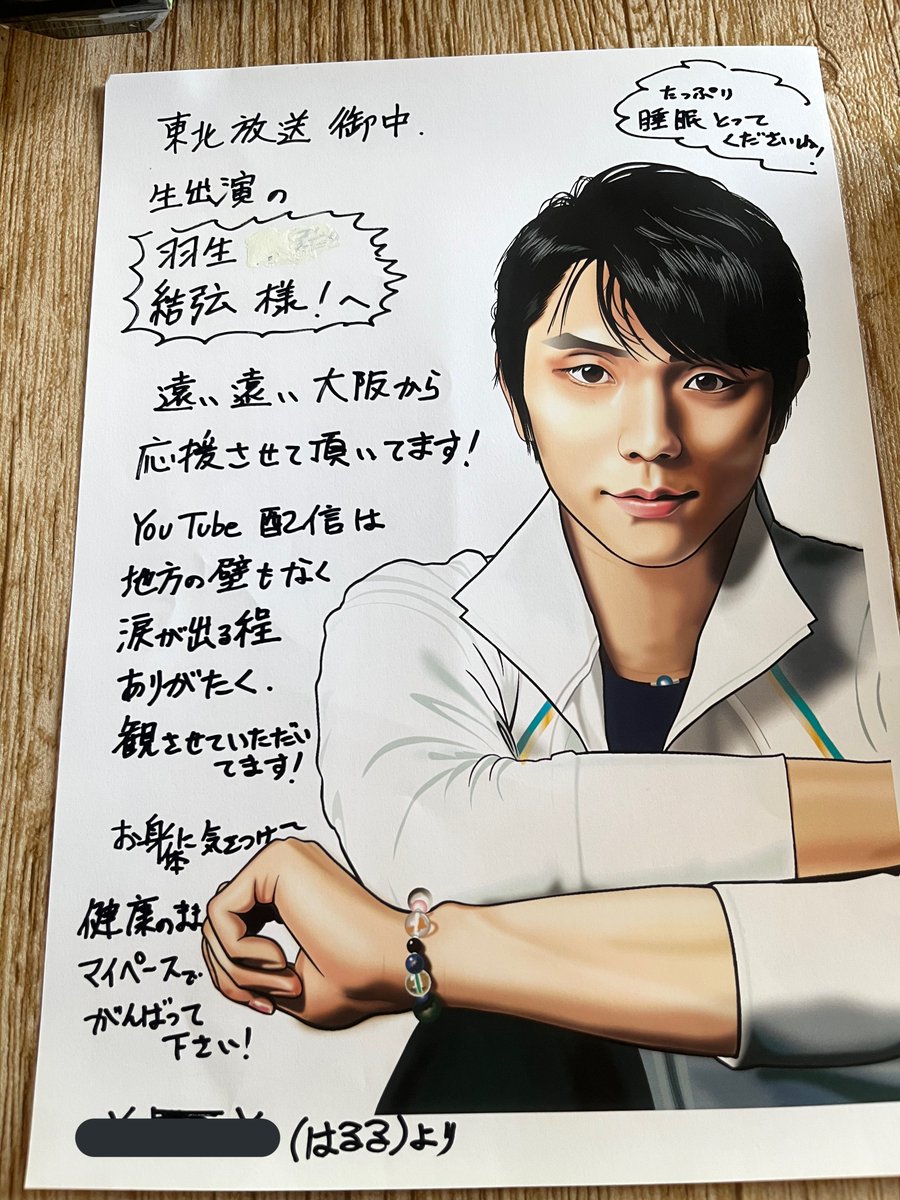 東北放送 御中.
生出演の
羽生
結弦 様!へ
遠い遠い大阪から
応援させて頂いてます!
YouTube 配信は
地方の壁もなく
涙が出る程
ありがたく.
観させていただい
てます!
お身体に気をつけて
健康のまま
マイペースで
がんばって
下さい!
(はるる)より
たっぷり
睡眠とって
くださいね!